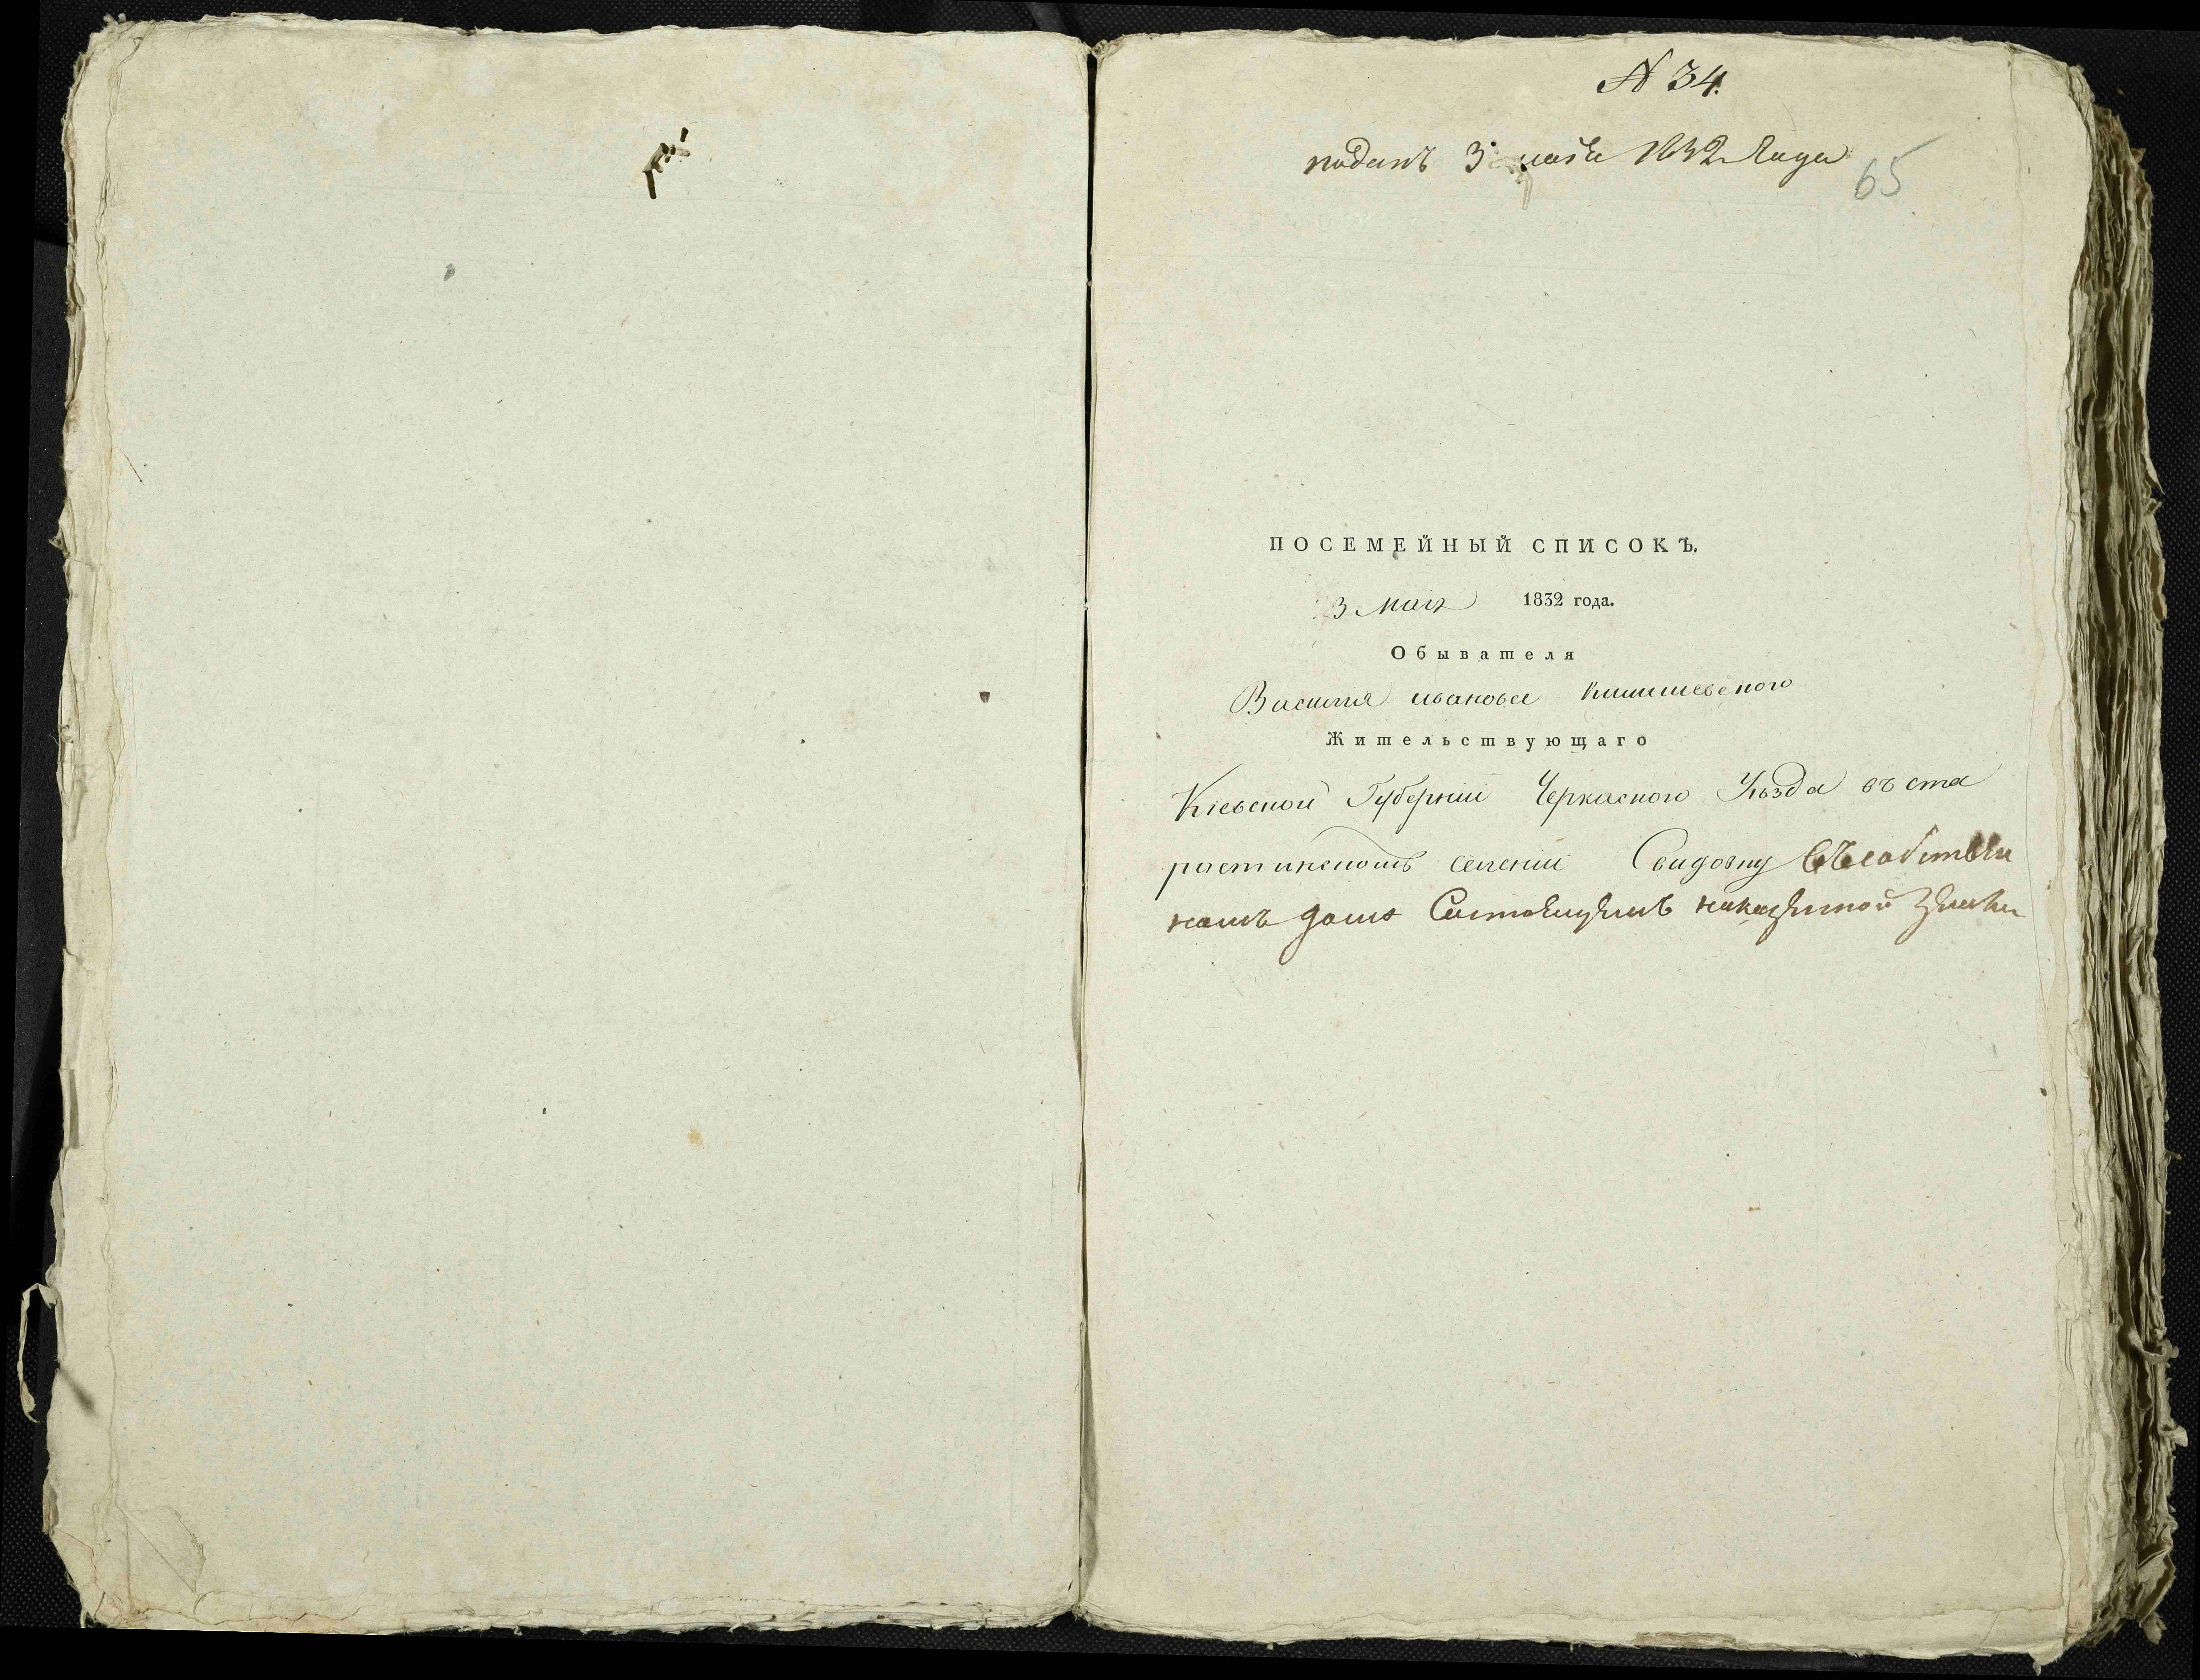 N 34.
поданъ 3 мая 1832 Года
65
ПОСЕМЕЙНЫЙ СПИСОКЪ.
3 мая 1832 года.
Обывателя
Василия иванова
Жительствующаго
Кіевской Губерніи Черкаского Уѣзда въ ста
ростинскомъ селеніи Свидовку въ собствен
номъ доме Состоящемъ на казенной земли